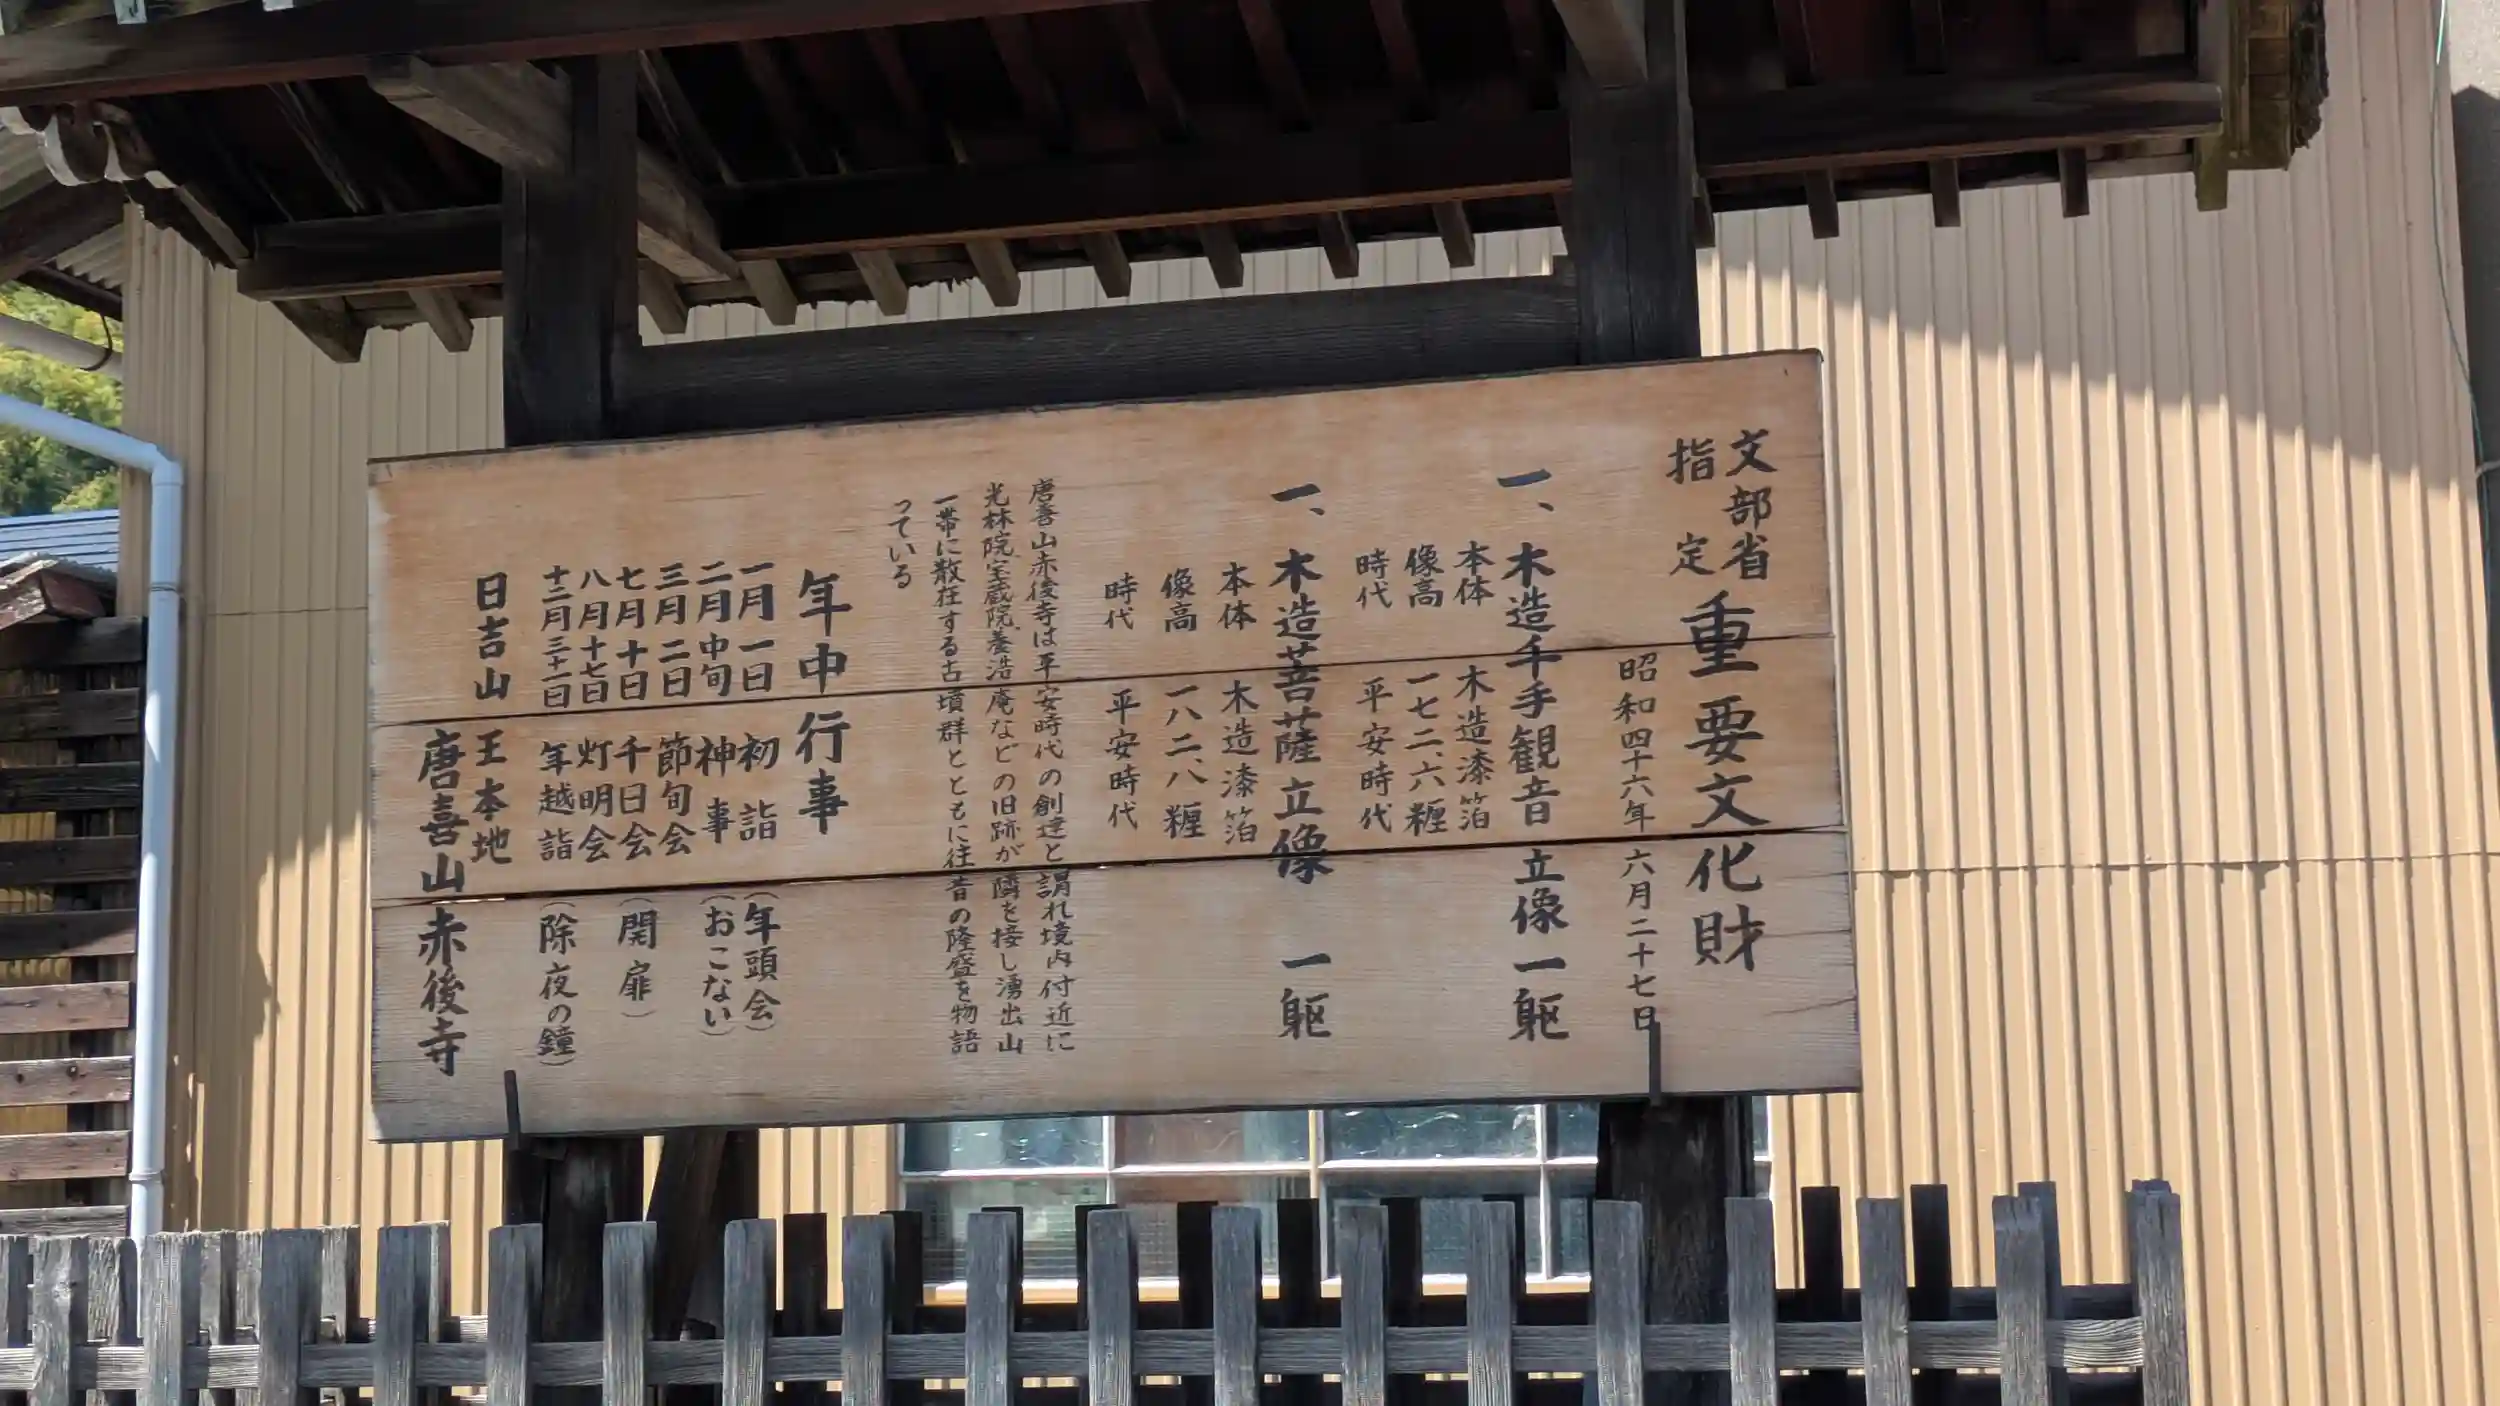 文部省
指定
重要文化財
昭和四十六年 六月二十七日
一、木造千手観音立像 一躯
本体 木造漆箔
像高 一七二、六糎
時代 平安時代
一、木造菩薩立像 一躯
本体 木造漆箔
像高 一八二、八糎
時代 平安時代
唐喜山赤後寺は平安時代の創建と謂れ境内付近に
光林院、宝蔵院、養浩庵などの旧跡が隣を接し湧出山
一帯に散在する古墳群とともに往昔の隆盛を物語
っている
年中行事
一月一日 初詣 (年頭会)
二月中旬 神事 (おこない)
三月二日 節旬会
七月十日 千日会 (開扉)
八月十七日 灯明会
十二月三十一日 年越詣 (除夜の鐘)
日吉山王本地
唐喜山赤後寺